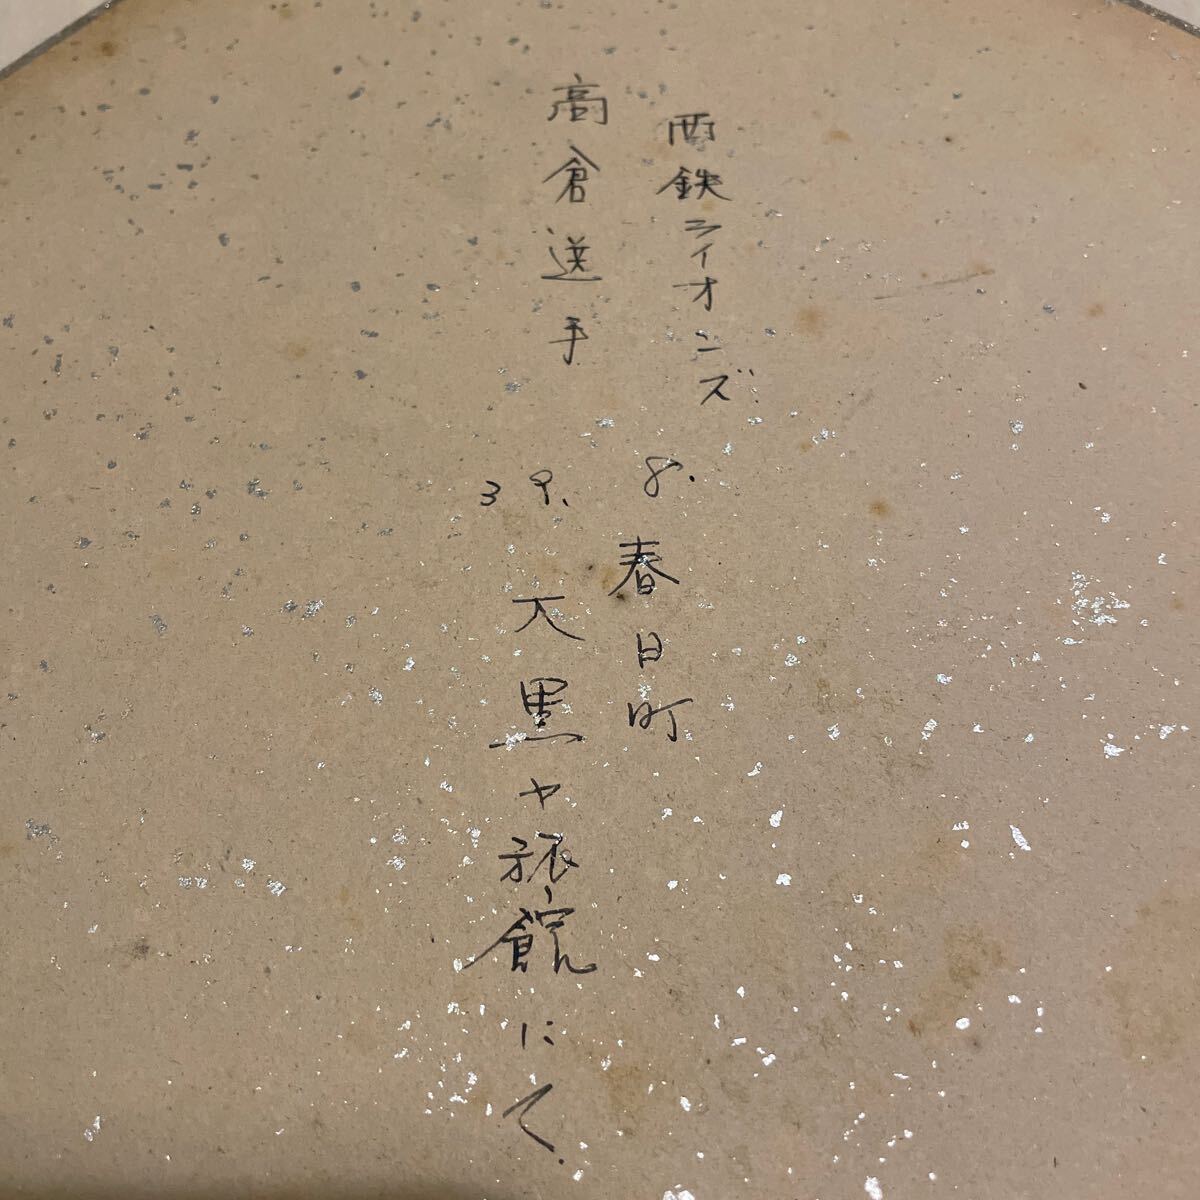 西鉄ライオンズ
高倉選手
8.春日町
39.大黒ヤ旅館にて.